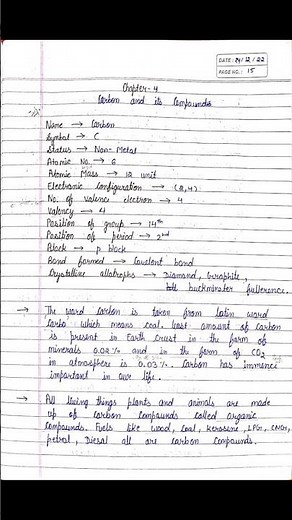 DATE: 24/12/22
PAGE NO.: 15
Chapter - 4
Carbon and its Compounds
Name → Carbon
Symbol → C
Status → Non-Metal
Atomic No. → 6
Atomic Mass → 12 unit
Electronic configuration → (2,4)
No. of valence electron → 4
Valency → 4
Position of group → 14th
Position of period → 2nd
Block → p block
Bond formed → Covalent bond
Crystalline allotrophs → Diamond, Graphite,
buckminster fullerence.
→ The word carbon is taken from latin word
'carbo' which means coal. least amount of carbon
is present in Earth Crust in the form of
minerals 0.02% and in the form of CO2
in atmosphere is 0.03%. Carbon has immence
important in our life.
→ All living things plants and animals are made
up of carbon compounds called organic
compounds. Fuels like wood, Coal, kerosene, LPG, CNG,
petrol, Diesal all are carbon compounds.